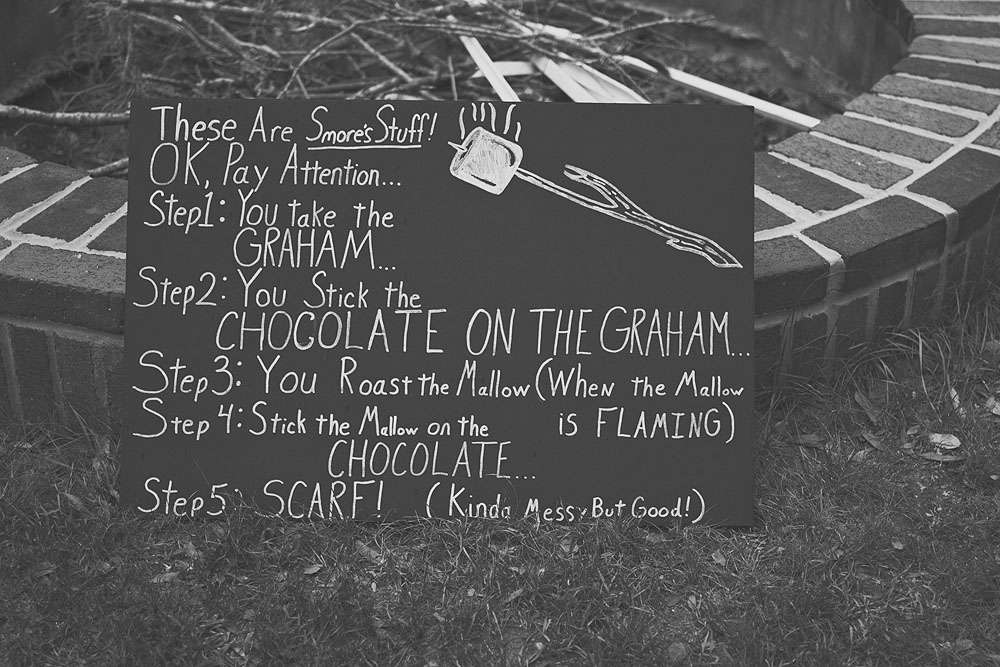 These Are Smore's Stuff!
OK, Pay Attention...
Step1: You take the
GRAHAM...
Step2: You Stick the
CHOCOLATE ON THE GRAHAM...
Step3: You Roast the Mallow (When the Mallow
is FLAMING)
Step 4: Stick the Mallow on the
CHOCOLATE...
Step5: SCARF! (Kinda Messy But Good!)